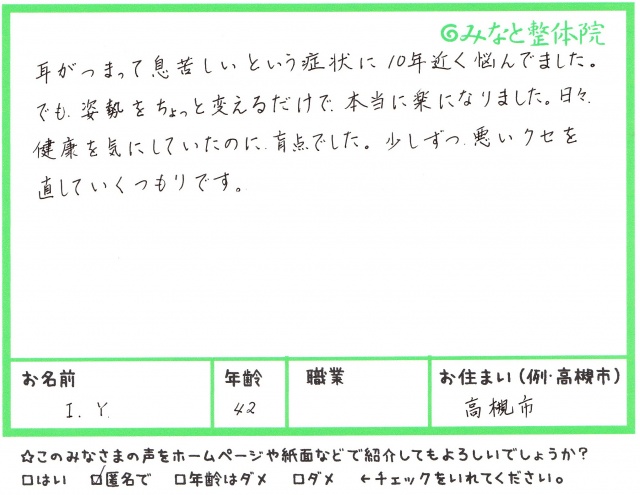 みなと整体院
耳がつまって息苦しいという症状に10年近く悩んでました。
でも、姿勢をちょっと変えるだけで、本当に楽になりました。日々、
健康を気にしていたのに、盲点でした。少しずつ、悪いクセを
直していくつもりです。
お名前 年齢 職業 お住まい(例・高槻市)
I.Y. 42 高槻市
☆このみなさまの声をホームページや紙面などで紹介してもよろしいでしょうか?
□はい ☑匿名で □年齢はダメ □ダメ ←チェックをいれてください。